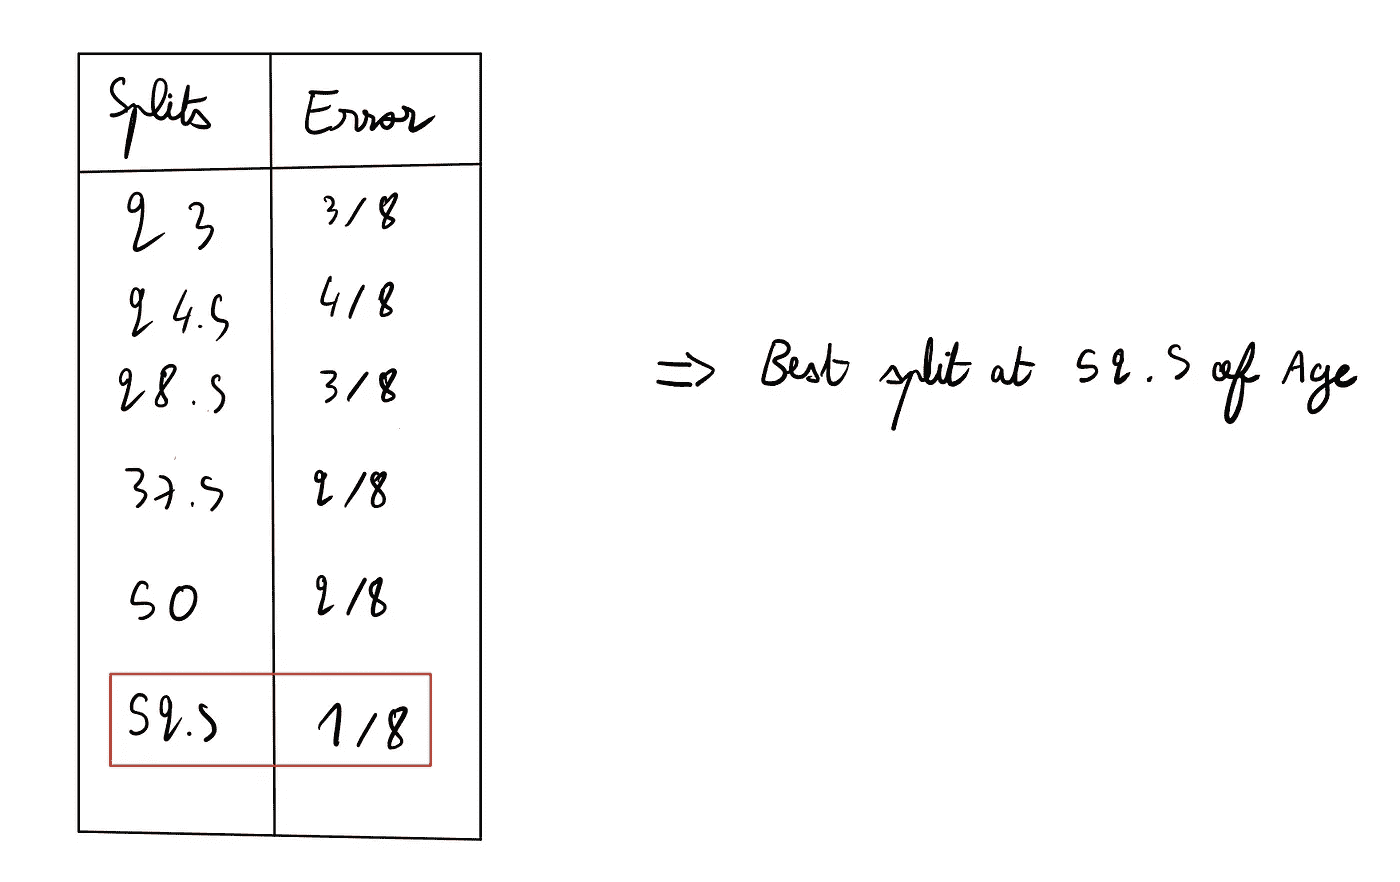 Splits Error
23 3/8
24.5 4/8
28.5 3/8
37.5 2/8
50 2/8
52.5 1/8
⇒ Best split at 52.5 of Age